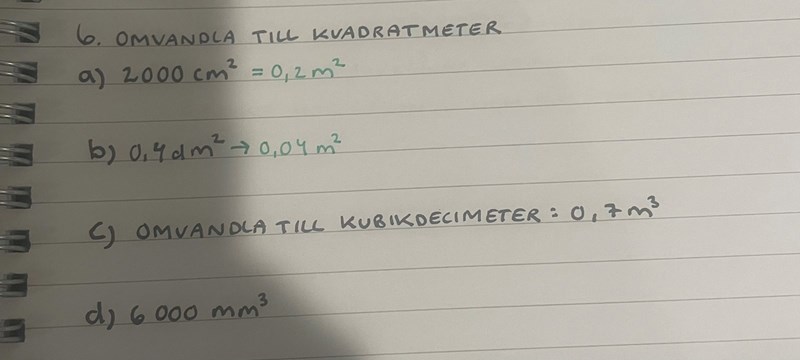 6. OMVANDLA TILL KVADRATMETER
a) 2000 cm² = 0,2 m²
b) 0,4 dm² → 0,04 m²
c) OMVANDLA TILL KUBIKDECIMETER: 0,7 m³
d) 6 000 mm³